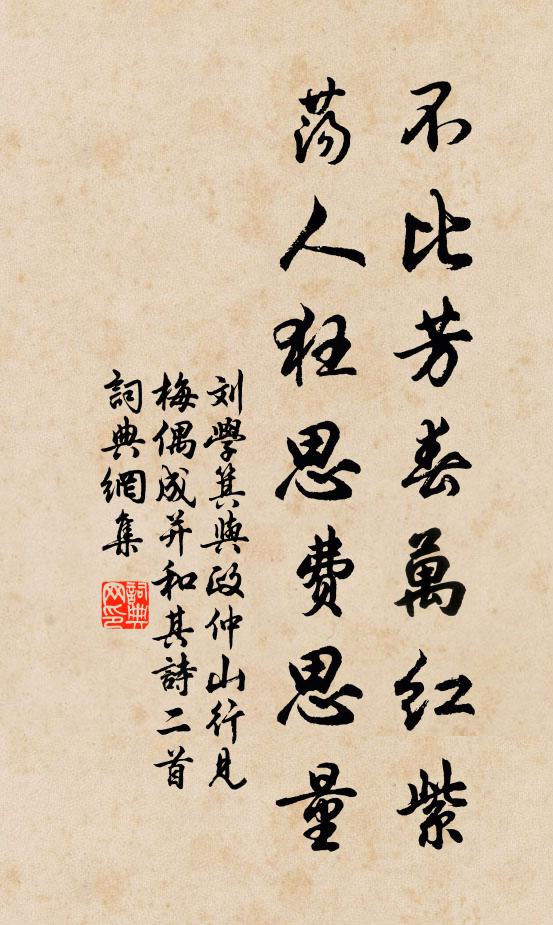 不比芳春萬紅紫
蕩人狂思費思量
刘學箕與政仲山行見
梅偶成并和其詩二首
詞典網集
詞典
网印